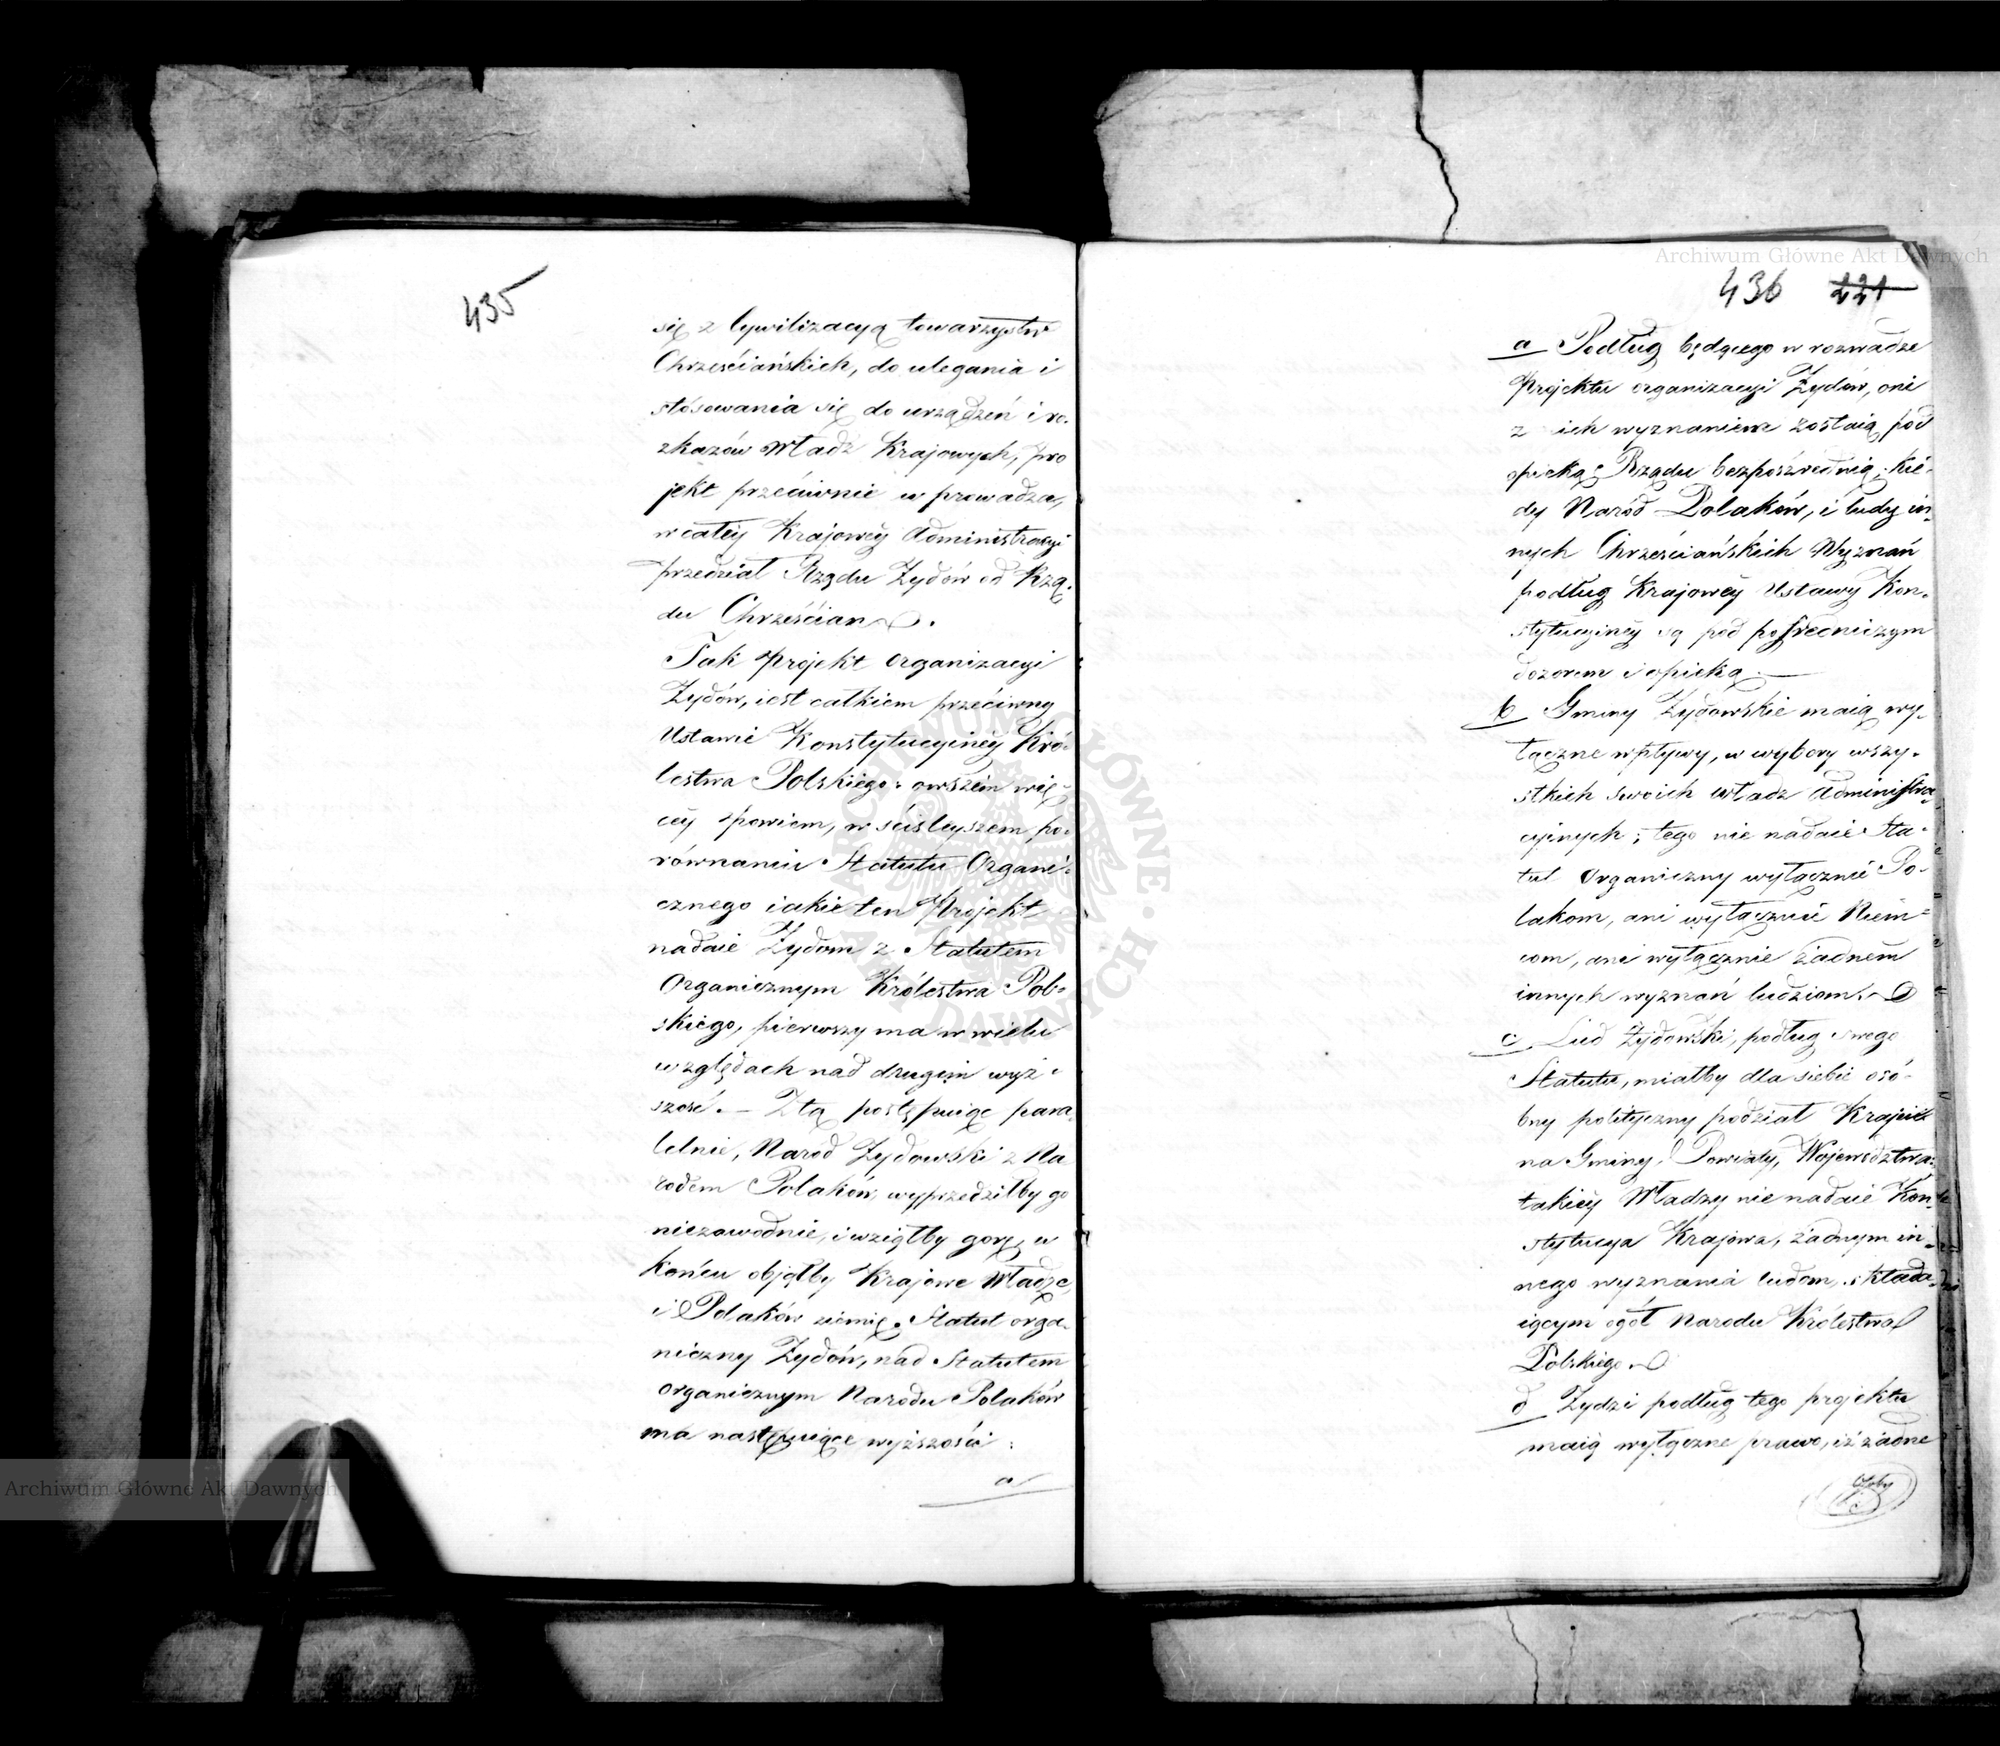 435
się z Cywilizacyą towarzystw
Chrześciańskich, do ulegania i
stósowania się do urządzeń i ro-
zkazów Władz Krajowych, pro
jekt przeciwnie w prowadza,
w całey Krajowey Administracyi
przedział Rządu Żydów od Rzą-
du Chrześcian.
Tak projekt organizacyi
Żydów, iest całkiem przeciwny
Ustawie Konstytucyiney Kró-
lestwa Polskiego: owszem wię-
cey powiem, w ściśleyszem po-
równaniu Statutu Organi-
cznego iakie ten Projekt
nadaie Żydom z Statutem
Organicznym Królestwa Pol-
skiego, pierwszy ma w wielu
względach nad drugim wyż-
szość. — Ztą postępuiąc para-
lelnie, Naród Żydowski z Na
rodem Polaków, wyprzedziłby go
niezawodnie, i wziąłby gorę, w
końcu objąłby Krajowe Władze,
i Polaków ziemię. Statut orga-
niczny Żydów, nad Statutem
organicznym Narodu Polaków
ma następuiące wyższości:
a
436 221
a Podług będącego w rozwadze
Projektu organizacyi Żydów, oni
z ich wyznaniem zostaią pod
opieką Rządu bezpośrednią; kie-
dy Naród Polaków, i ludy in-
nych Chrześciańskich Wyznań
podług Krajowey Ustawy Kon-
stytucyiney są pod pośredniczym
dozorem i opieką.
b Gminy Żydowskie maią wy-
łączne wpływy, w wybory wszy-
stkich swoich władz Administra-
cyinych; tego nie nadaie Sta-
tut Organiczny wyłącznie Po-
lakom, ani wyłącznie Niem-
com, ani wyłącznie żadnem
innych wyznań ludziom.
c Lud Żydowski, podług swego
Statutu, miałby dla siebie osó-
bny polityczny podział Kraju
na Gminy, Powiaty, Województwa:
takiey Władzy nie nadaie Kon-
stytucya Krajowa, żadnym in-
nego wyznania ludom, składa-
iącym ogół Narodu Królestwa
Polskiego.
d Żydzi podług tego projektu
maią wyłączne prawo, iż żadne
Archiwum Główne Akt Dawnych
Archiwum Główne Akt Dawnych
ARCHIWUM GŁÓWNE AKT DAWNYCH